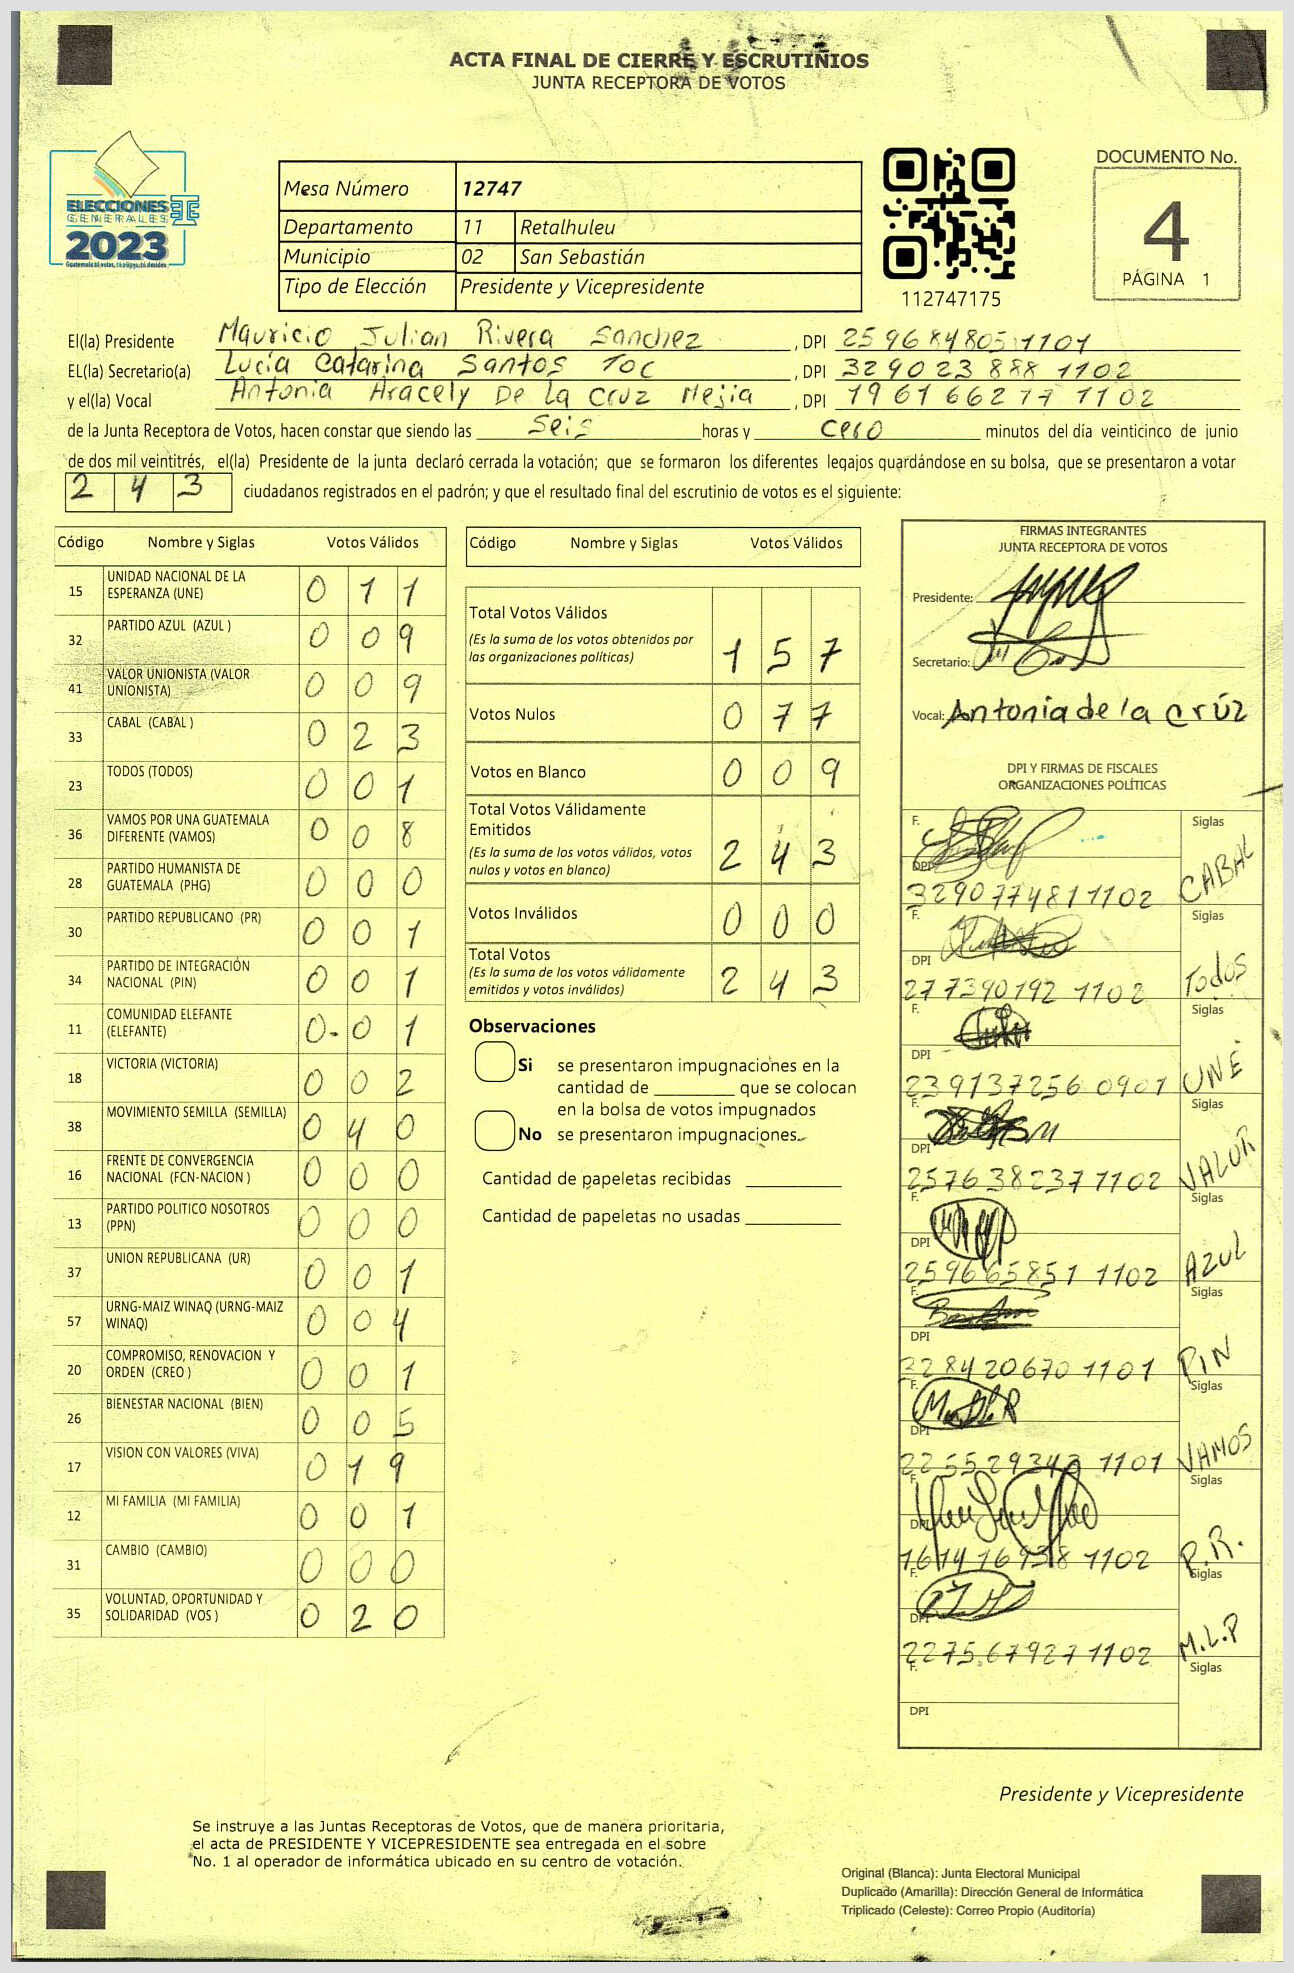 ACTA FINAL DE CIERRE Y ESCRUTINIOS
JUNTA RECEPTORA DE VOTOS
ELECCIONES
GENERALES
2023
Guatemala tú votas, tú eliges, tú decides
Mesa Número 12747
Departamento 11 Retalhuleu
Municipio 02 San Sebastián
Tipo de Elección Presidente y Vicepresidente
112747175
DOCUMENTO No.
4
PÁGINA 1
El(la) Presidente Mauricio Julian Rivera Sanchez , DPI 259684805 1101
EL(la) Secretario(a) Lucía Catarina Santos Toc , DPI 329023888 1102
y el(la) Vocal Antonia Aracely De La Cruz Mejia , DPI 196166277 1102
de la Junta Receptora de Votos, hacen constar que siendo las Seis horas y cero minutos del día veinticinco de junio
de dos mil veintitrés, el(la) Presidente de la junta declaró cerrada la votación; que se formaron los diferentes legajos guardándose en su bolsa, que se presentaron a votar
243 ciudadanos registrados en el padrón; y que el resultado final del escrutinio de votos es el siguiente:
Código Nombre y Siglas Votos Válidos
15 UNIDAD NACIONAL DE LA ESPERANZA (UNE) 011
32 PARTIDO AZUL (AZUL ) 009
41 VALOR UNIONISTA (VALOR UNIONISTA) 009
33 CABAL (CABAL ) 023
23 TODOS (TODOS) 001
36 VAMOS POR UNA GUATEMALA DIFERENTE (VAMOS) 008
28 PARTIDO HUMANISTA DE GUATEMALA (PHG) 000
30 PARTIDO REPUBLICANO (PR) 001
34 PARTIDO DE INTEGRACIÓN NACIONAL (PIN) 001
11 COMUNIDAD ELEFANTE (ELEFANTE) 0-01
18 VICTORIA (VICTORIA) 002
38 MOVIMIENTO SEMILLA (SEMILLA) 040
16 FRENTE DE CONVERGENCIA NACIONAL (FCN-NACION ) 000
13 PARTIDO POLITICO NOSOTROS (PPN) 000
37 UNION REPUBLICANA (UR) 001
57 URNG-MAIZ WINAQ (URNG-MAIZ WINAQ) 004
20 COMPROMISO, RENOVACION Y ORDEN (CREO ) 001
26 BIENESTAR NACIONAL (BIEN) 005
17 VISION CON VALORES (VIVA) 019
12 MI FAMILIA (MI FAMILIA) 001
31 CAMBIO (CAMBIO) 000
35 VOLUNTAD, OPORTUNIDAD Y SOLIDARIDAD (VOS ) 020
Código Nombre y Siglas Votos Válidos
Total Votos Válidos
(Es la suma de los votos obtenidos por
las organizaciones políticas) 157
Votos Nulos 077
Votos en Blanco 009
Total Votos Válidamente
Emitidos
(Es la suma de los votos válidos, votos
nulos y votos en blanco) 243
Votos Inválidos 000
Total Votos
(Es la suma de los votos válidamente
emitidos y votos inválidos) 243
Observaciones
Si se presentaron impugnaciones en la
cantidad de ________ que se colocan
en la bolsa de votos impugnados
No se presentaron impugnaciones.
Cantidad de papeletas recibidas
Cantidad de papeletas no usadas
FIRMAS INTEGRANTES
JUNTA RECEPTORA DE VOTOS
Presidente:
Secretario:
Vocal: Antonia de la Crúz
DPI Y FIRMAS DE FISCALES
ORGANIZACIONES POLÍTICAS
F. Siglas
DPI 329077481 1102 CABAL
F. Siglas
DPI 277390192 1102 Todos
F. Siglas
DPI 239137256 0901 UNE
F. Siglas
DPI 257638237 1102 VALOR
F. Siglas
DPI 259665851 1102 AZUL
F. Siglas
DPI 228420670 1101 PIN
F. Siglas
DPI 225529343 1101 VAMOS
F. Siglas
DPI 161416938 1102 P.R.
F. Siglas
DPI 227567927 1102 M.L.P
F. Siglas
DPI
Presidente y Vicepresidente
Se instruye a las Juntas Receptoras de Votos, que de manera prioritaria,
el acta de PRESIDENTE Y VICEPRESIDENTE sea entregada en el sobre
No. 1 al operador de informática ubicado en su centro de votación.
Original (Blanca): Junta Electoral Municipal
Duplicado (Amarilla): Dirección General de Informática
Triplicado (Celeste): Correo Propio (Auditoría)